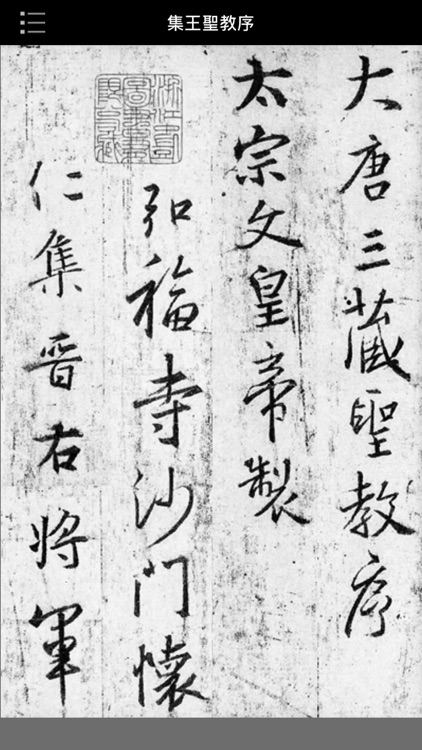 集王聖教序
大唐三藏聖教序
太宗文皇帝製
弘福寺沙门懷
仁集晉右將軍